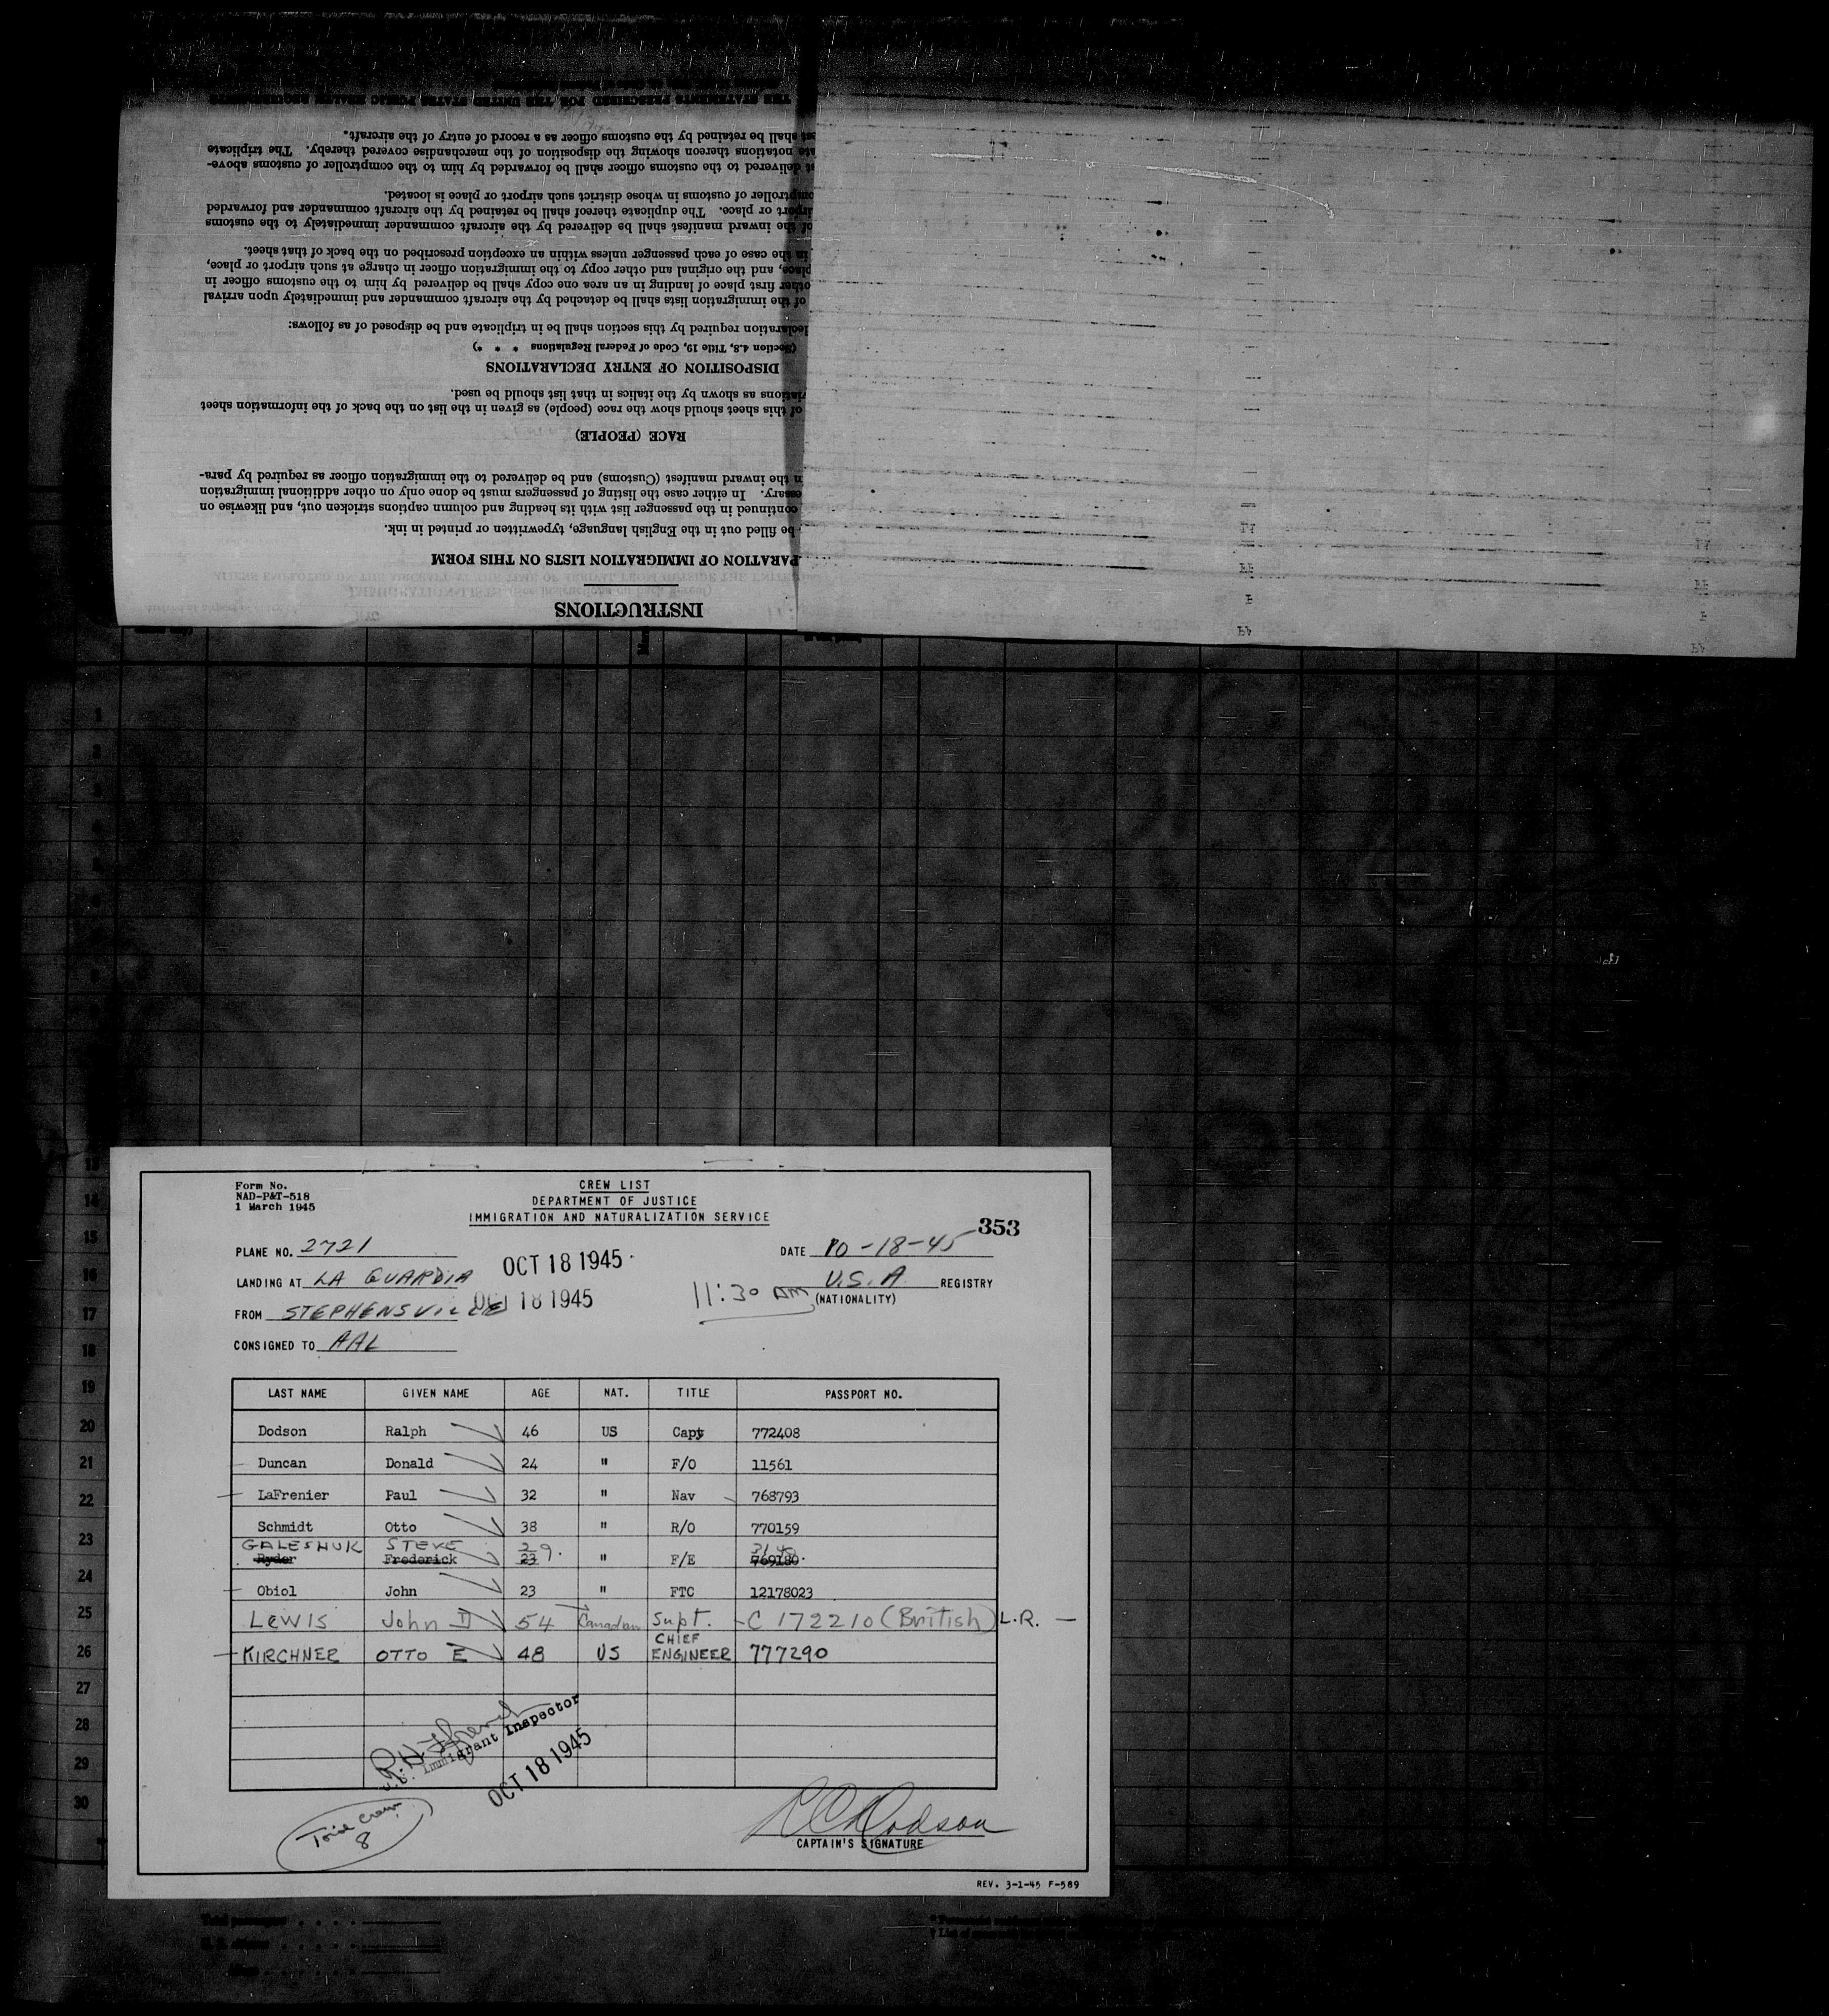 THE STATEMENTS PRESCRIBED FOR THE UNITED STATES PUBLIC HEALTH
shall be retained by the customs officer as a record of entry of the aircraft.
notations thereon showing the disposition of the merchandise covered thereby. The triplicate
delivered to the customs officer shall be forwarded by him to the comptroller of customs above-
comptroller of customs in whose district such airport or place is located.
airport or place. The duplicate thereof shall be retained by the aircraft commander and forwarded
of the inward manifest shall be delivered by the aircraft commander immediately to the customs
in the case of each passenger unless within an exception prescribed on the back of that sheet.
place, and the original and other copy to the immigration officer in charge at such airport or place,
other first place of landing in an area one copy shall be delivered by him to the customs officer in
of the immigration lists shall be detached by the aircraft commander and immediately upon arrival
declaration required by this section shall be in triplicate and be disposed of as follows:
(Section 4.8, Title 19, Code of Federal Regulations * * *)
DISPOSITION OF ENTRY DECLARATIONS
viations as shown by the italics in that list should be used.
of this sheet should show the race (people) as given in the list on the back of the information sheet
RACE (PEOPLE)
n the inward manifest (Customs) and be delivered to the immigration officer as required by para-
essary. In either case the listing of passengers must be done only on other additional immigration
continued in the passenger list with its heading and column captions stricken out, and likewise on
be filled out in the English language, typewritten or printed in ink.
PARATION OF IMMIGRATION LISTS ON THIS FORM
INSTRUCTIONS
1
2
3
13
14
15
16
17
18
19
20
21
22
23
24
25
26
27
28
29
30
Form No.
NAD-P&T-518
1 March 1945
CREW LIST
DEPARTMENT OF JUSTICE
IMMIGRATION AND NATURALIZATION SERVICE
353
PLANE NO. 2721
OCT 18 1945
DATE 10-18-45
LANDING AT LA GUARDIA
U.S.A. REGISTRY
(NATIONALITY)
11:30 AM
FROM STEPHENSVILLE
OCT 18 1945
CONSIGNED TO AAL
LAST NAME GIVEN NAME AGE NAT. TITLE PASSPORT NO.
Dodson Ralph 46 US Capt 772408
Duncan Donald 24 " F/O 11561
LaFrenier Paul 32 " Nav 768793
Schmidt Otto 38 " R/O 770159
GALESHUK STEVE 29
Ryder Frederick 23 " F/E 769180
Obiol John 23 " FTC 12178023
LEWIS John D 54 Canadian Supt. C 172210 (British) L.R. —
KIRCHNER OTTO E 48 US CHIEF ENGINEER 777290
Immigrant Inspector
OCT 18 1945
Total Crew
8
R C Dodson
CAPTAIN'S SIGNATURE
REV. 3-1-45 F-589